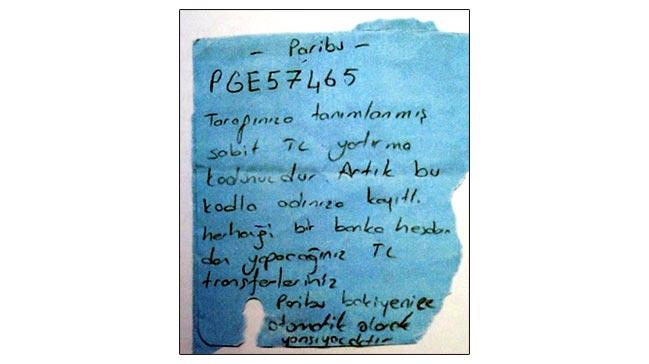 - Paribu -
PGE57465
Tarafınıza tanımlanmış
sabit TL yatırma
kodunuzdur. Artık bu
kodla adınıza kayıtlı
herhangi bir banka hesabın
dan yapacağınız TL
transferleriniz
Paribu bakiyenize
otomatik olarak
yansıyacaktır